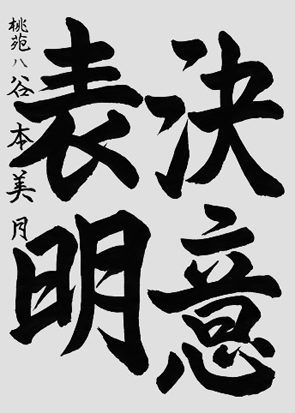 決意
表明
桃苑八谷本美月